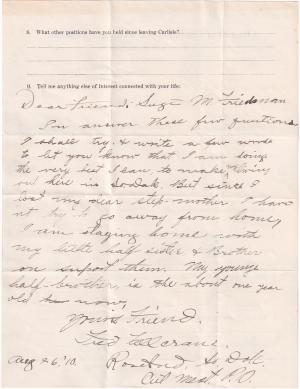 8. What other positions have you held since leaving Carlisle?
9. Tell me anything else of interest connected with your life:
Dear Friend: Supt M. Friedman
In answer these few questions
I shall try & write a few words
to let you know that I am doing
the very best I can to make living
out here in So. Dak. But since I
lost my dear step-mother I have
nt go away from home,
I am staying home with
my little half sister & Brother
on suport them. My young
half brother, is the about one year
old now,
yours Friend.
Fred
Aug 26, '10. Rosebud, So Dak
Cut Meat, P.O.